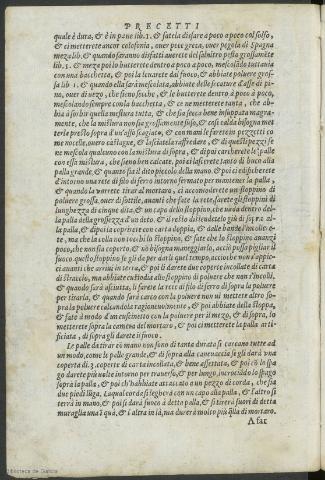 PRECETTI
quale è dura, & è in pane lib. 1. & fatela disfare à poco à poco col solfo,
& ci metterete ancor colofonia, ouer pece greca, ouer pegola di Spagna
meza lib. & quando seranno disfatti auerete del salnitro pesto grossamẽte
lib. 3. & mezo poi lo butterete dentro à poco à poco, mescolãdo tuttauia
con una bacchetta, & poi la leuarete dal fuoco, & abbiate poluere gros-
sa lib 1. & quando ella sarà mescolata, abbiate delle
no, ouer di uezo, che sieno secche, & le butterete dentro à poco à poco,
mescolando sempre con la bacchetta, & ce ne metterete tanta, che ab-
bia à sorbir quella mestura tutta, & che sia secca bene insuppata magra-
mente, che la mistura non sia grossamente suso, & cosi calda bisogna met-
terle presso sopra d'un asse & con mani farete in pezzetti co
me nocelle, ouero castagne, & lasciatela raffredare, & di questi pezzi se
ne mescola qualcuno con la mistura di sopra, & dipoi caricherete le palle
con essa mistura, che sieno ben calcate, poi ci lascirete tanto di buco alla
palla grande, quanto sia il dito piccolo della mano. & poi ci edificherete
d'intorno una rete di filo di ferro intorno fermato per mantener la palla,
& quando la uorrete tirar al mortaro, ci accõciarete un stoppino di
poluere grossa, ouer di sottile, auanti che fate la rete, sarete gli stoppini di
lunghezza di cinque dita, & un capo dello stoppino, che uada dentro del-
la palla della grossezza d'un deto, & il resto distendetelo giù di sopra al-
la palla, & dipoi la coprirete con carta doppia, & dalle bande l'incolle-
te, ma che la colla non tocchi lo stoppino, & fate che lo stoppino auanzi
poco, che non sia coperto. & se bisogna maneggiarlo, acciò possa pigliar il
fuoco. questo stoppino se gli dà per darli quel tempo, accioche non s'appic-
ci auanti che arriui in terra, & poi li darete due coperte incollate di carta
di straccio, ma abbiate custodia allo stoppino di poluere che non s'incolli,
& quando sarà asciutta, li farete la rete di filo di ferro di sopra la poluere
per tirarla, & quando sarà carco con la poluere non ui mettete altro so-
pra la poluere calcandola ragioneuolmente, & poi abbiate della stoppa,
& fate à modo d'un cuscinetto con la poluere per il mezo, & di sopra, lo
metterete sopra la camera del mortaro, & poi ci metterete la palla arti-
ficiata, di sopra gli darete il fuoco.
Le palle da tirare cõ mano non sono di tanta durata si carcano tutte ad
un modo, come le palle grande, & di sopra alla caneuaccia se gli darà una
coperta di 3. coperte di carta incollata, & bene assettata, & poi cõ lo spa
go darete più uolte intorno per trauerso, & per lungo, incrociãdo lo spago
sopra la palla, & poi ch'habbiate attaccato à un pezzo di corda, che sia
due piedi lũga, laqual corda si legherà con un capo alla palla, & l'altro si
terrà in mano, & poi si darà fuoco à detta palla, & si tirerà fuori di detta
muraglia una quà, & l'altra in là, ma durerà molto più q̃lla di mortaro.
A far